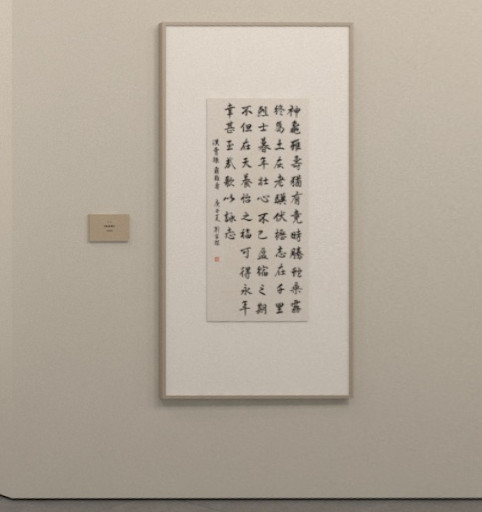 神龜雖壽猶有竟時騰蛇乘霧
終為土灰老驥伏櫪志在千里
烈士暮年壯心不已盈縮之期
不但在天養怡之福可得永年
幸甚至哉歌以詠志
漢曹操 龜雖壽